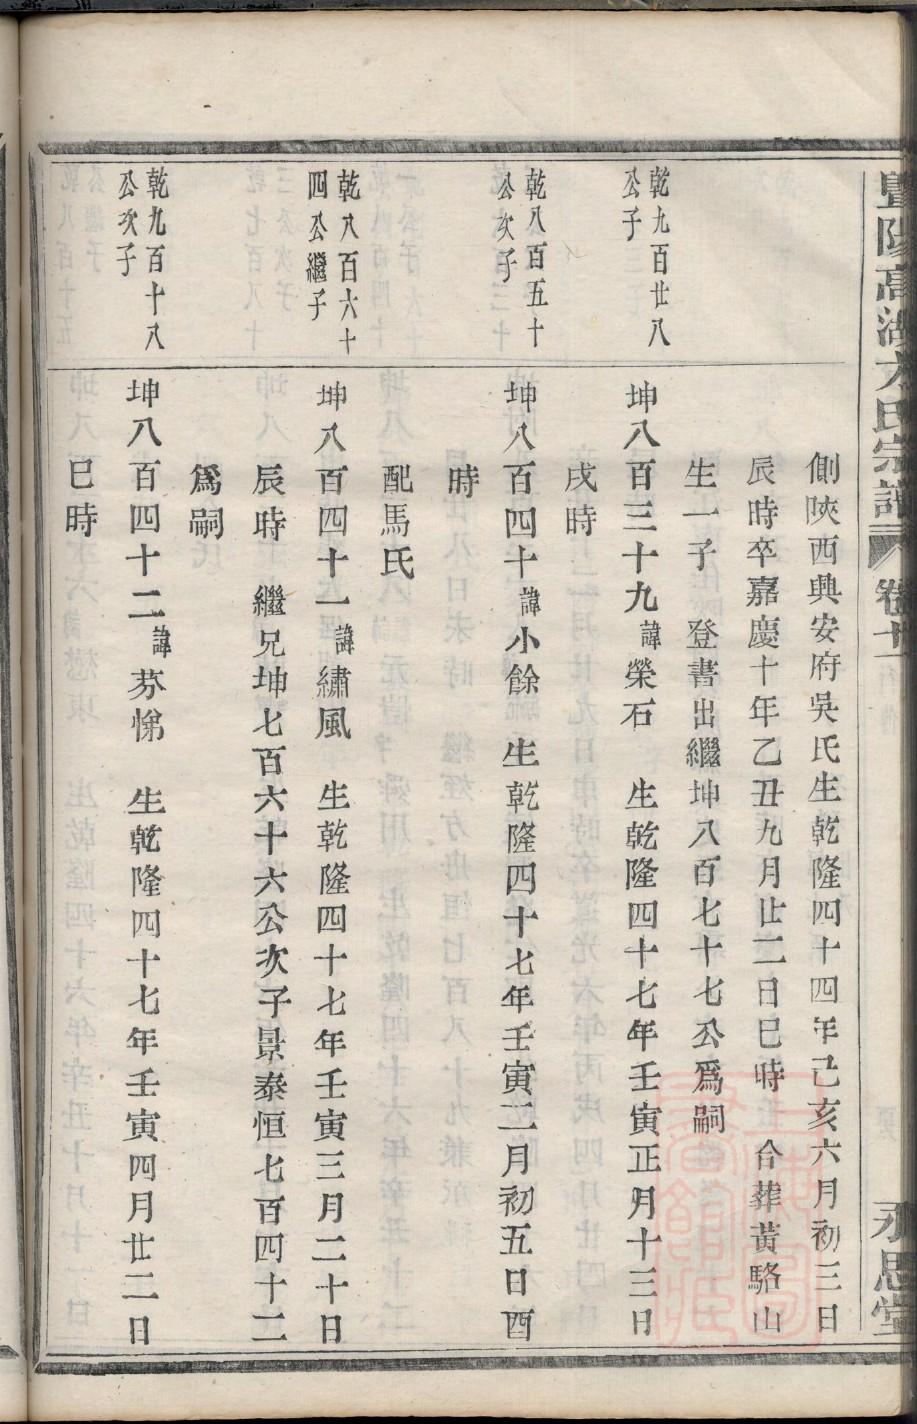 暨陽高湖方氏宗譜 卷十一 永思堂
側陜西興安府吳氏生乾隆四十四年己亥六月初三日
辰時卒嘉慶十年乙丑九月廿二日巳時 合葬黃駱山
生一子 登書出繼坤八百七十七公爲嗣
乾九百廿八
公子
坤八百三十九諱榮石 生乾隆四十七年壬寅正月十三日
戌時
乾八百五十
公次子
坤八百四十諱小餘 生乾隆四十七年壬寅二月初五日酉
時
配馬氏
乾八百六十
四公繼子
坤八百四十一諱繡風 生乾隆四十七年壬寅三月二十日
辰時 繼兄坤七百六十六公次子景泰恒七百四十二
爲嗣
乾九百十八
公次子
坤八百四十二諱芬悌 生乾隆四十七年壬寅四月廿二日
巳時